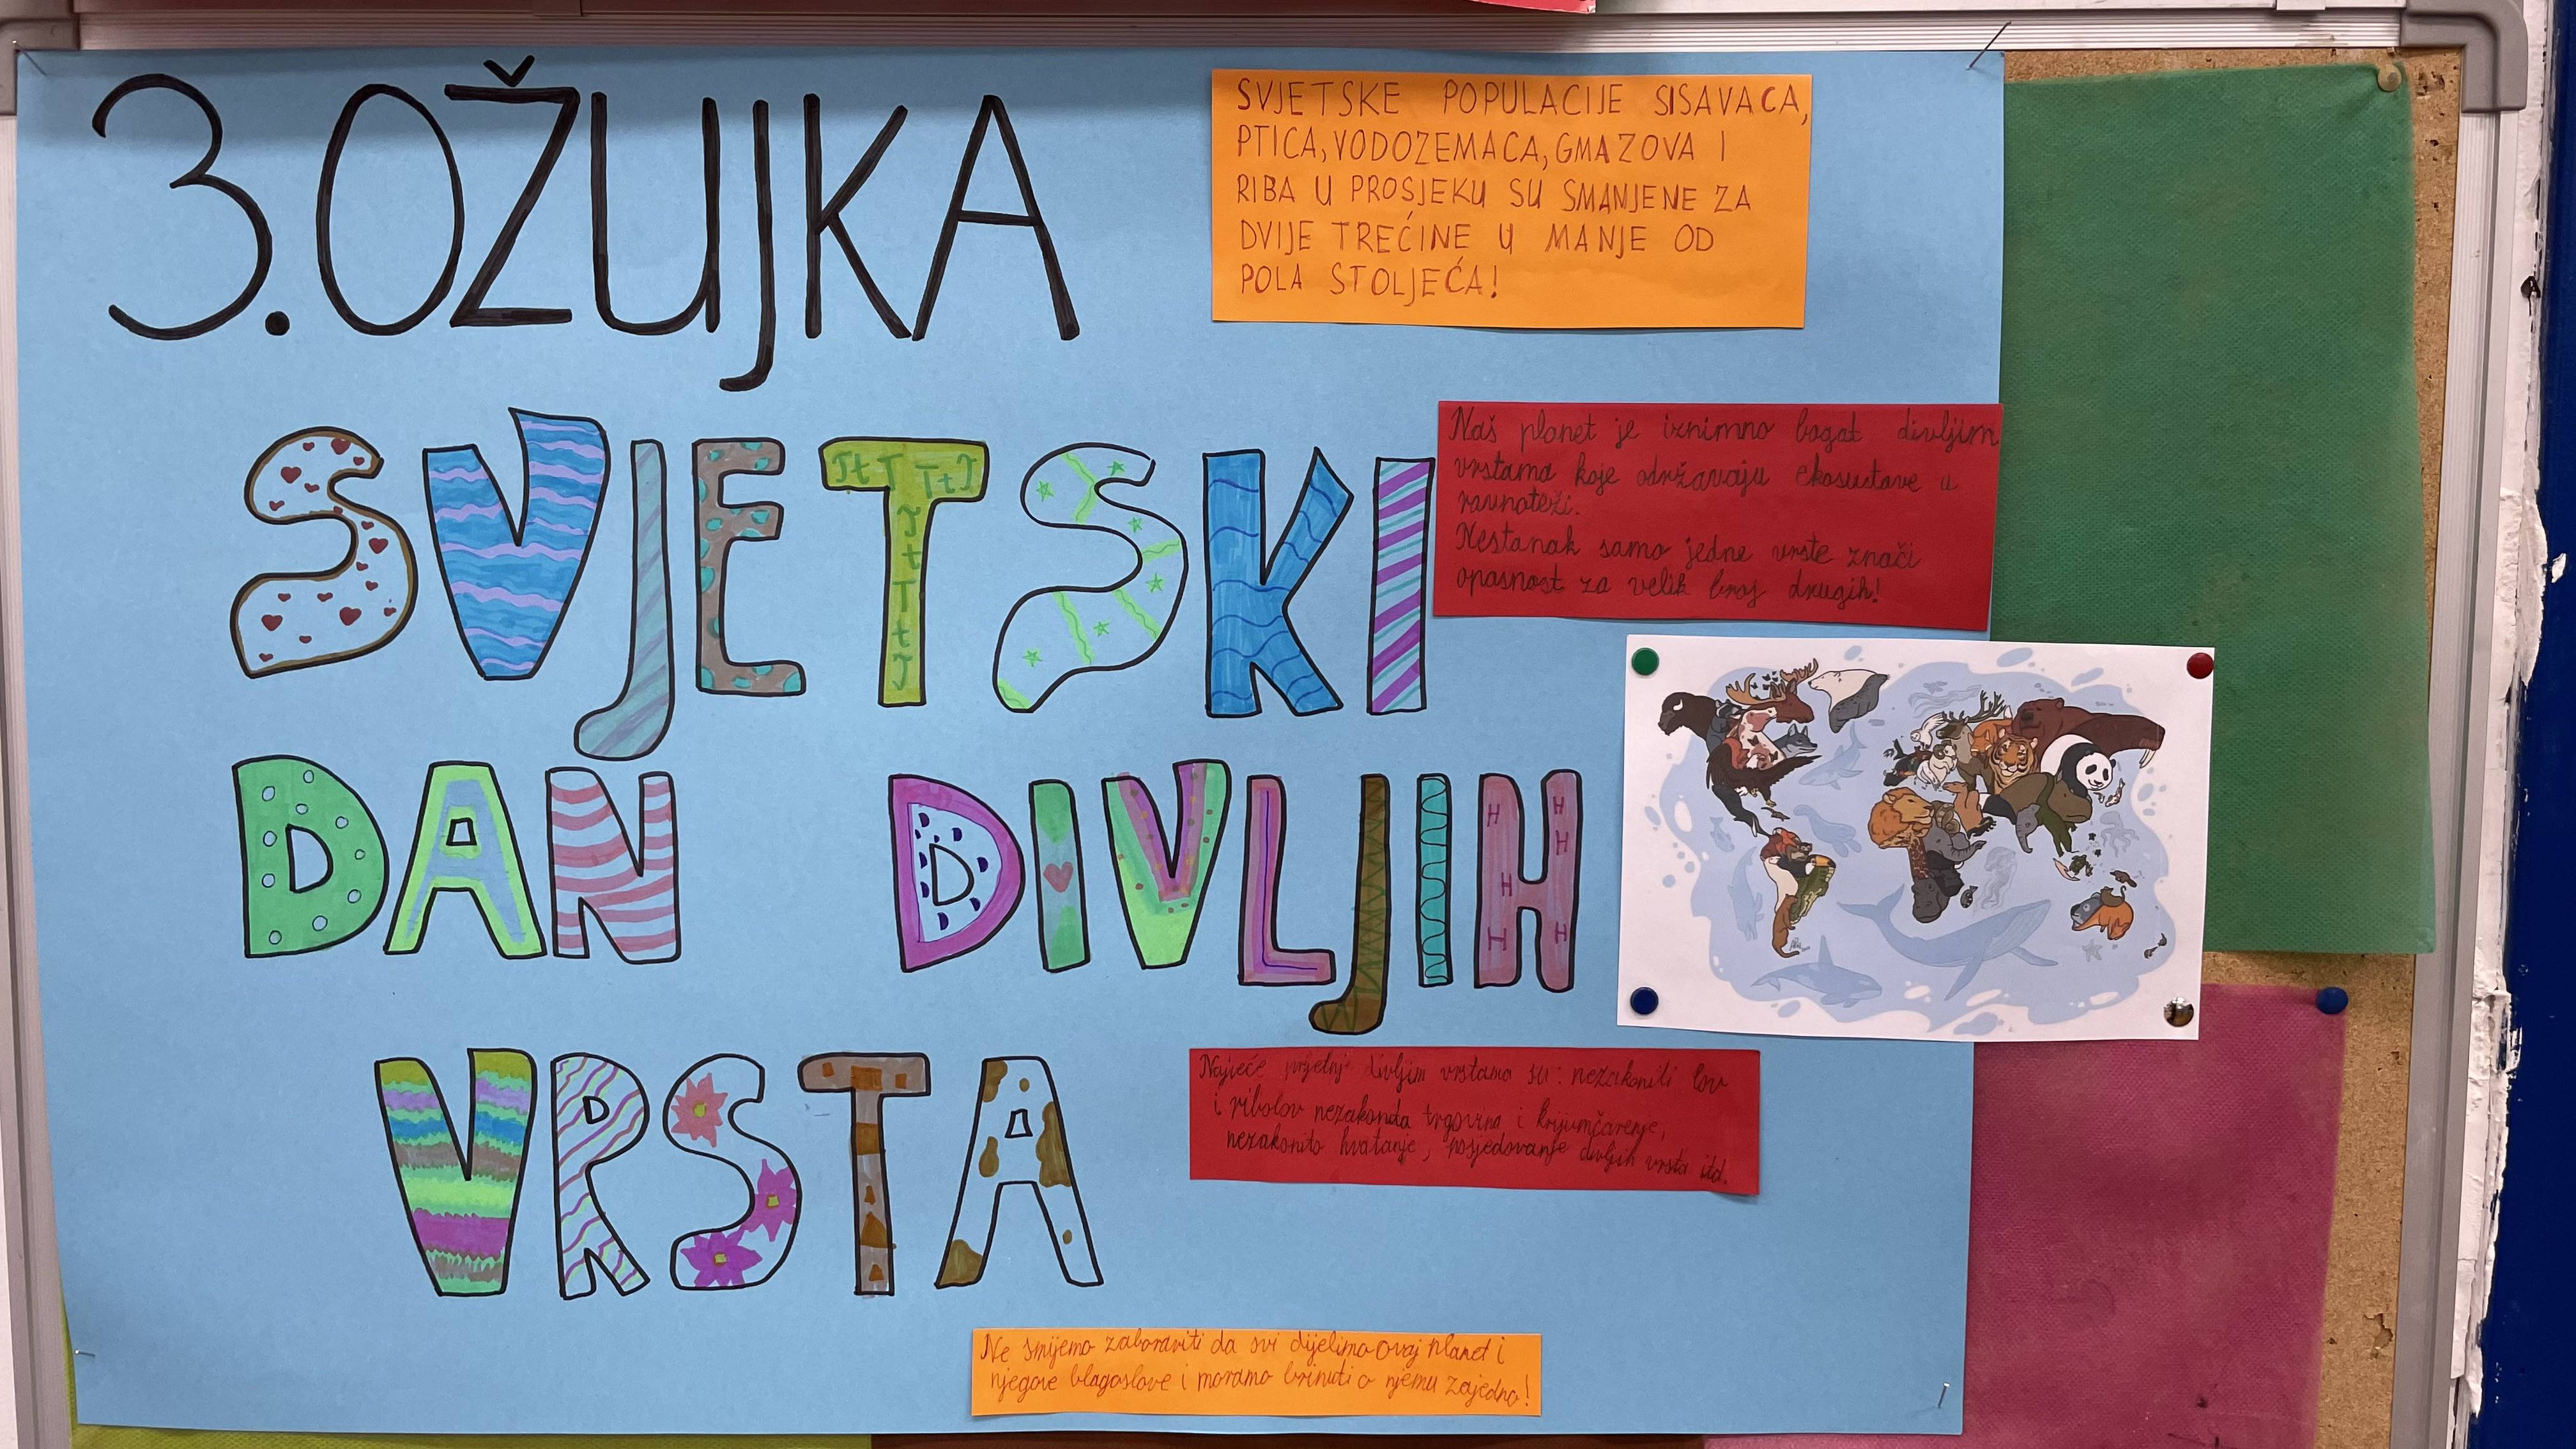 3. OŽUJKA
SVJETSKI
DAN DIVLJIH
VRSTA
SVJETSKE POPULACIJE SISAVACA,
PTICA, VODOZEMACA, GMAZOVA I
RIBA U PROSJEKU SU SMANJENE ZA
DVIJE TREĆINE U MANJE OD
POLA STOLJEĆA!
Naš planet je iznimno bogat divljim
vrstama koje održavaju ekosustave u
ravnoteži.
Nestanak samo jedne vrste znači
opasnost za velik broj drugih!
Najveće prijetnje divljim vrstama su: nezakoniti lov
i ribolov nezakonita trgovina i krijumčarenje,
nezakonito hvatanje, posjedovanje divljih vrsta itd.
Ne smijemo zaboraviti da svi dijelimo ovaj planet i
njegove blagoslove i moramo brinuti o njemu zajedno!